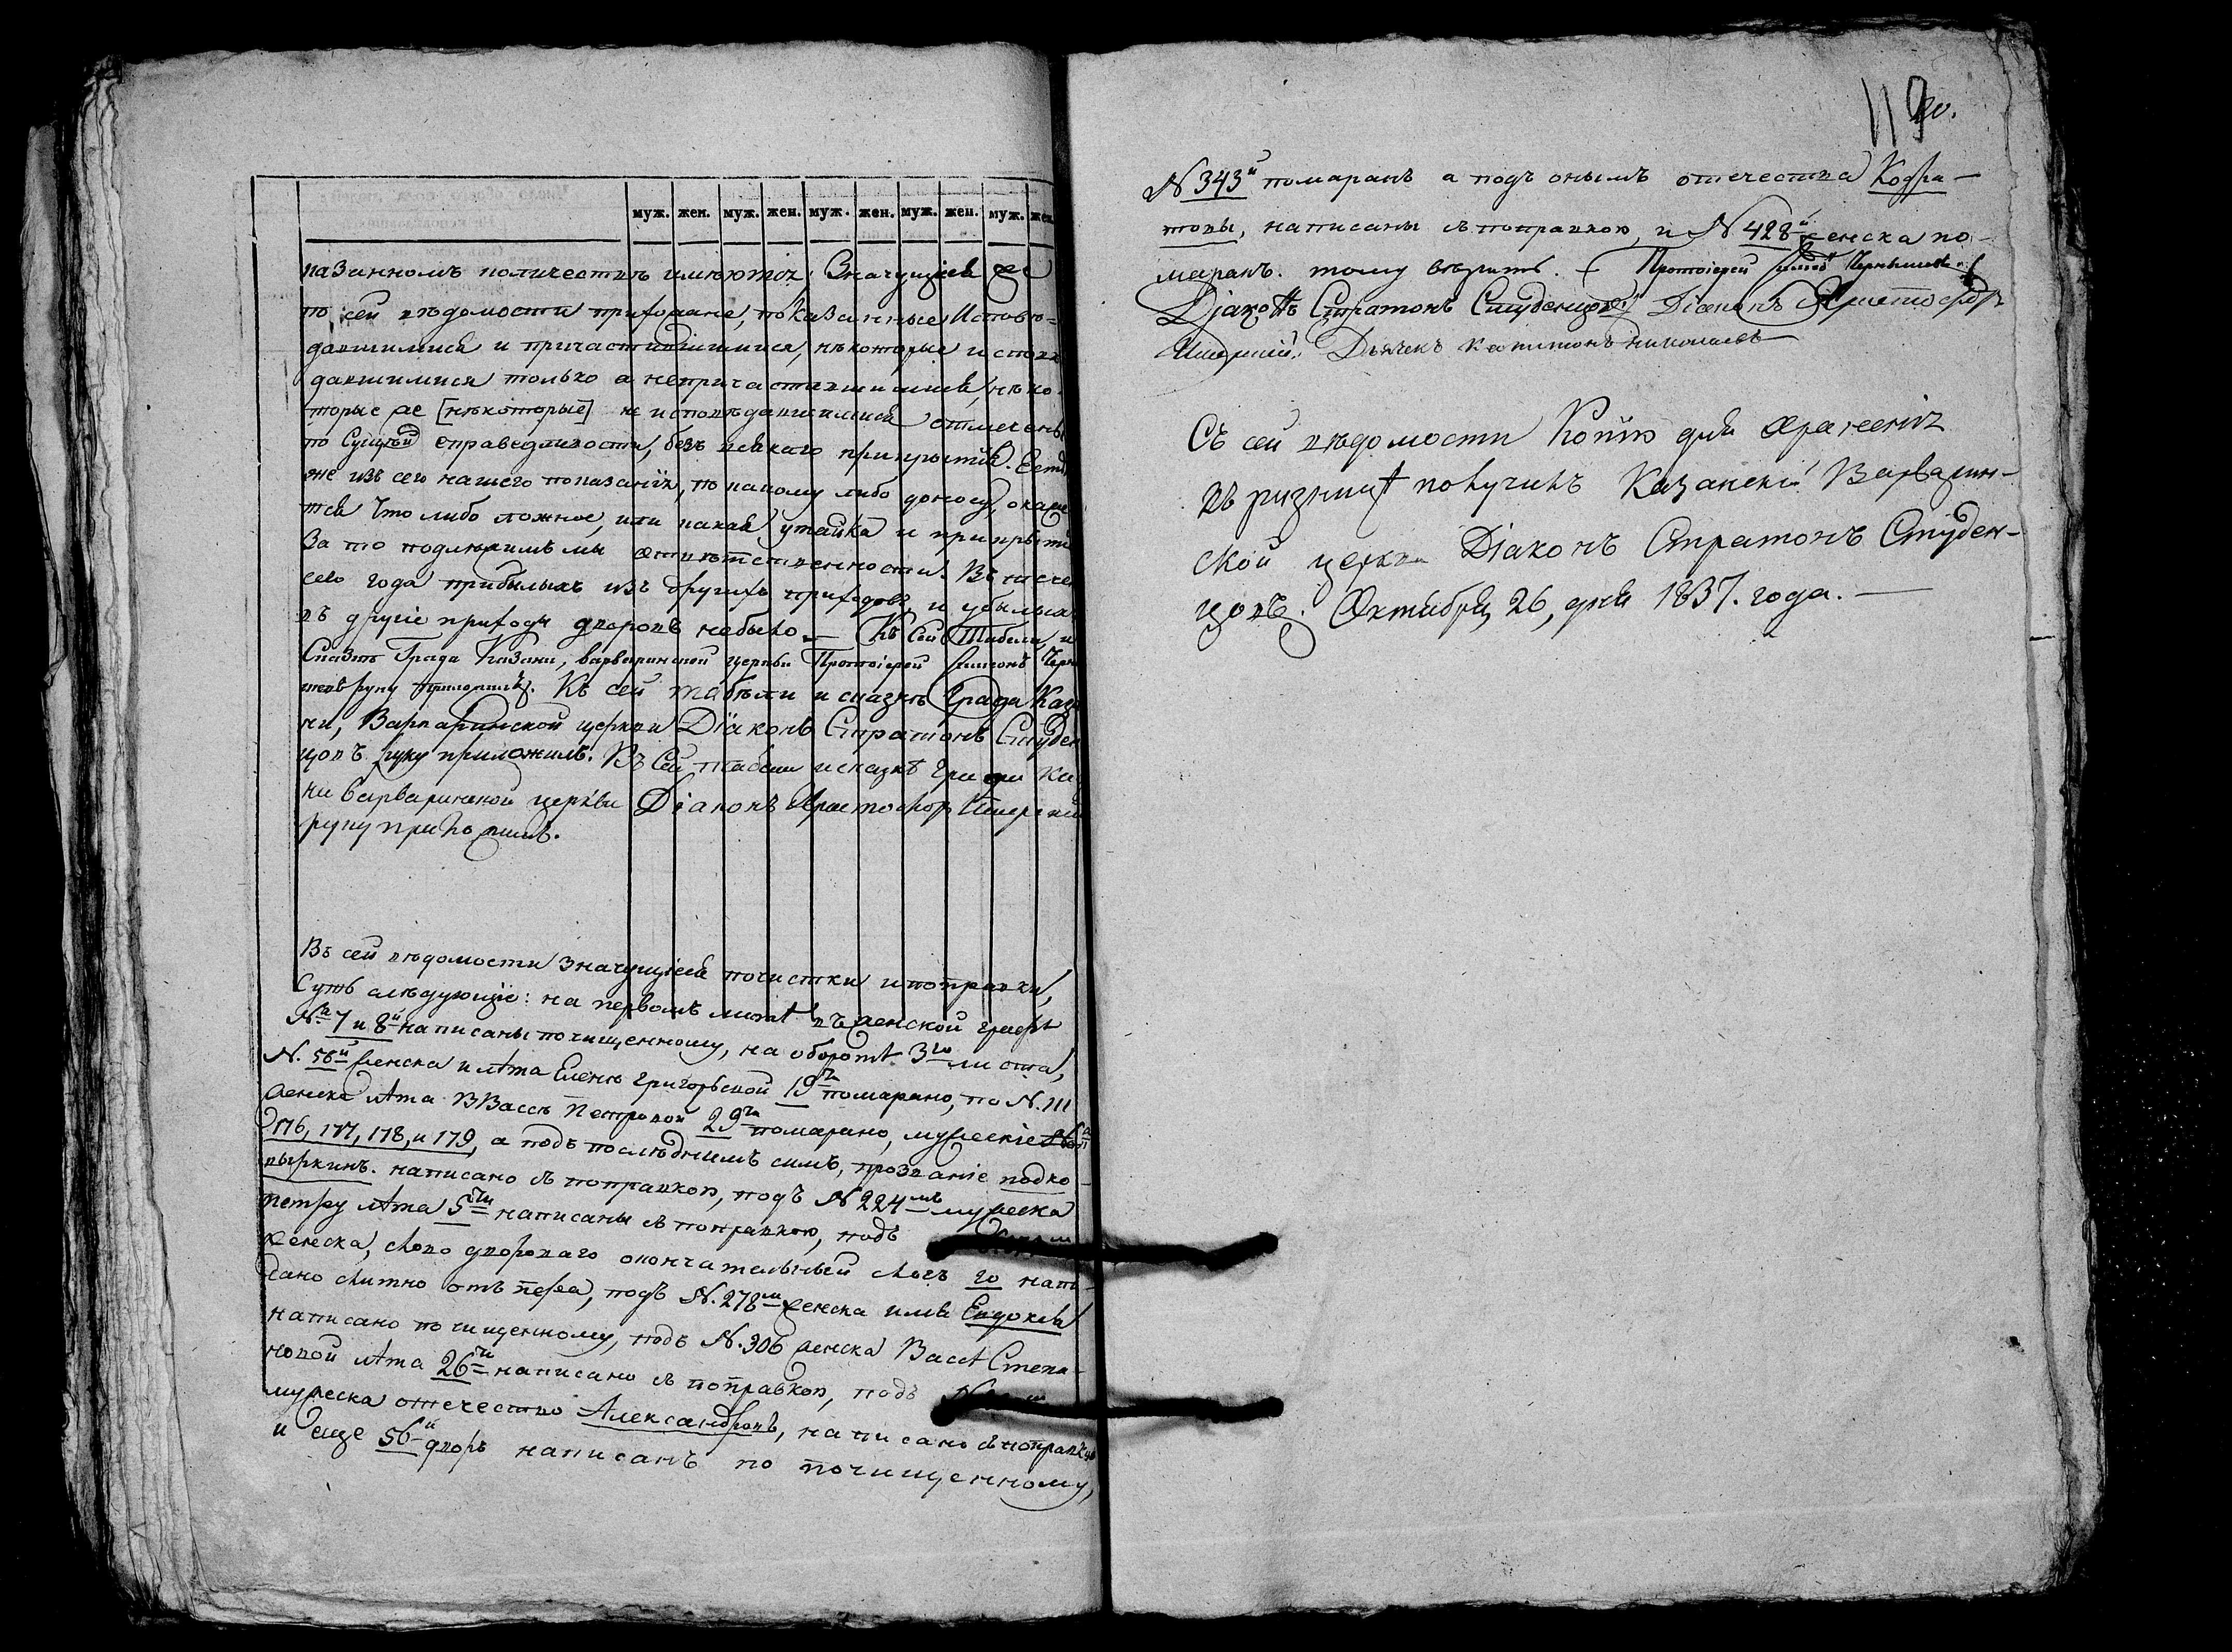 муж. жен. муж. жен. муж. жен. муж. жен. муж. жен.
казанномъ количествѣ имѣются. Значущіеся же
по сей вѣдомости прихожане, показанные Исповѣ=
давшимися и причастившимися, нѣкоторые исповѣ
давшимися только а непричастившимися, нѣко-
торые же [нѣкоторые] не исповѣдавшимися отмечены
по Сущей справедливости, безъ всякаго прикрытія. Есть
же изъ сего нашего показанія, по какому либо доносу, окаже
тся Что либо ложное, или какая утайка и прикрытіе
За то подлежимъ мы ответственности. Въ числе
сего года прибылыхъ изъ другихъ приходовъ, и убылыхъ
въ другіе приходы дворовъ небыло. — Къ Сей Табели, и
Сказкѣ Града Казани, варваринской церкви Протоіерей Симеонъ Черны
шевъ руку приложилъ. Къ сей табѣли и сказкѣ Града Каза
ни, Варваринской церкви Діаконъ Стратонъ Студен
цовъ руку приложилъ. Къ Сей табели и сказкѣ Града Каза
ни Варваринской церкви Діаконъ Христофоръ
руку приложилъ.
Въ сей вѣдомости значущіеся почистки и поправки,
Суть слѣдующіе: на первомъ листѣ въ женской графѣ
№ 7 и 8й написаны по чищенному, на оборотѣ 3го листа,
N. 56й женска и лѣта Еленѣ Григорьевой 19ть помарано, по N. 111
женска лѣта Вассѣ Петровой 29ть помарано, мужескіе
176, 177, 178, и 179, а подъ послѣднимъ симъ, прозваніе подко
выркинъ. написано съ поправкою, подъ N 224мъ мужеска
петру лѣта 5ть написаны съ поправкою, подъ
женска, слово двороваго окончательный слогъ го напи-
сано слитно отъ пера, подъ N. 278мъ женска имя Евдокея
написано по чищенному, подъ N. 306 женска Вассѣ Степа-
новой лѣта 26ть написано съ поправкою, подъ
мужеска отечество Александровъ, написано съ поправкою
и еще 56й дворъ написанъ по почищенному,
119
N 343й помаранъ а подъ онымъ отечества Кодра-
товы, написаны съ поправкою, и N 428й женска по-
маранъ. тому вѣрить. Протоіерей Симеонъ Чернышевъ.
Діаконъ Стратонъ Студенцовъ Діаконъ Христофоръ
Дьячекъ Капитонъ Николаевъ
Съ сей вѣдомости Копію для храненія
въ ризницѣ получилъ Казанской Варварин-
ской церкви Діаконъ Стратонъ Студен-
цовъ. Октября, 26, дня 1837. года. —